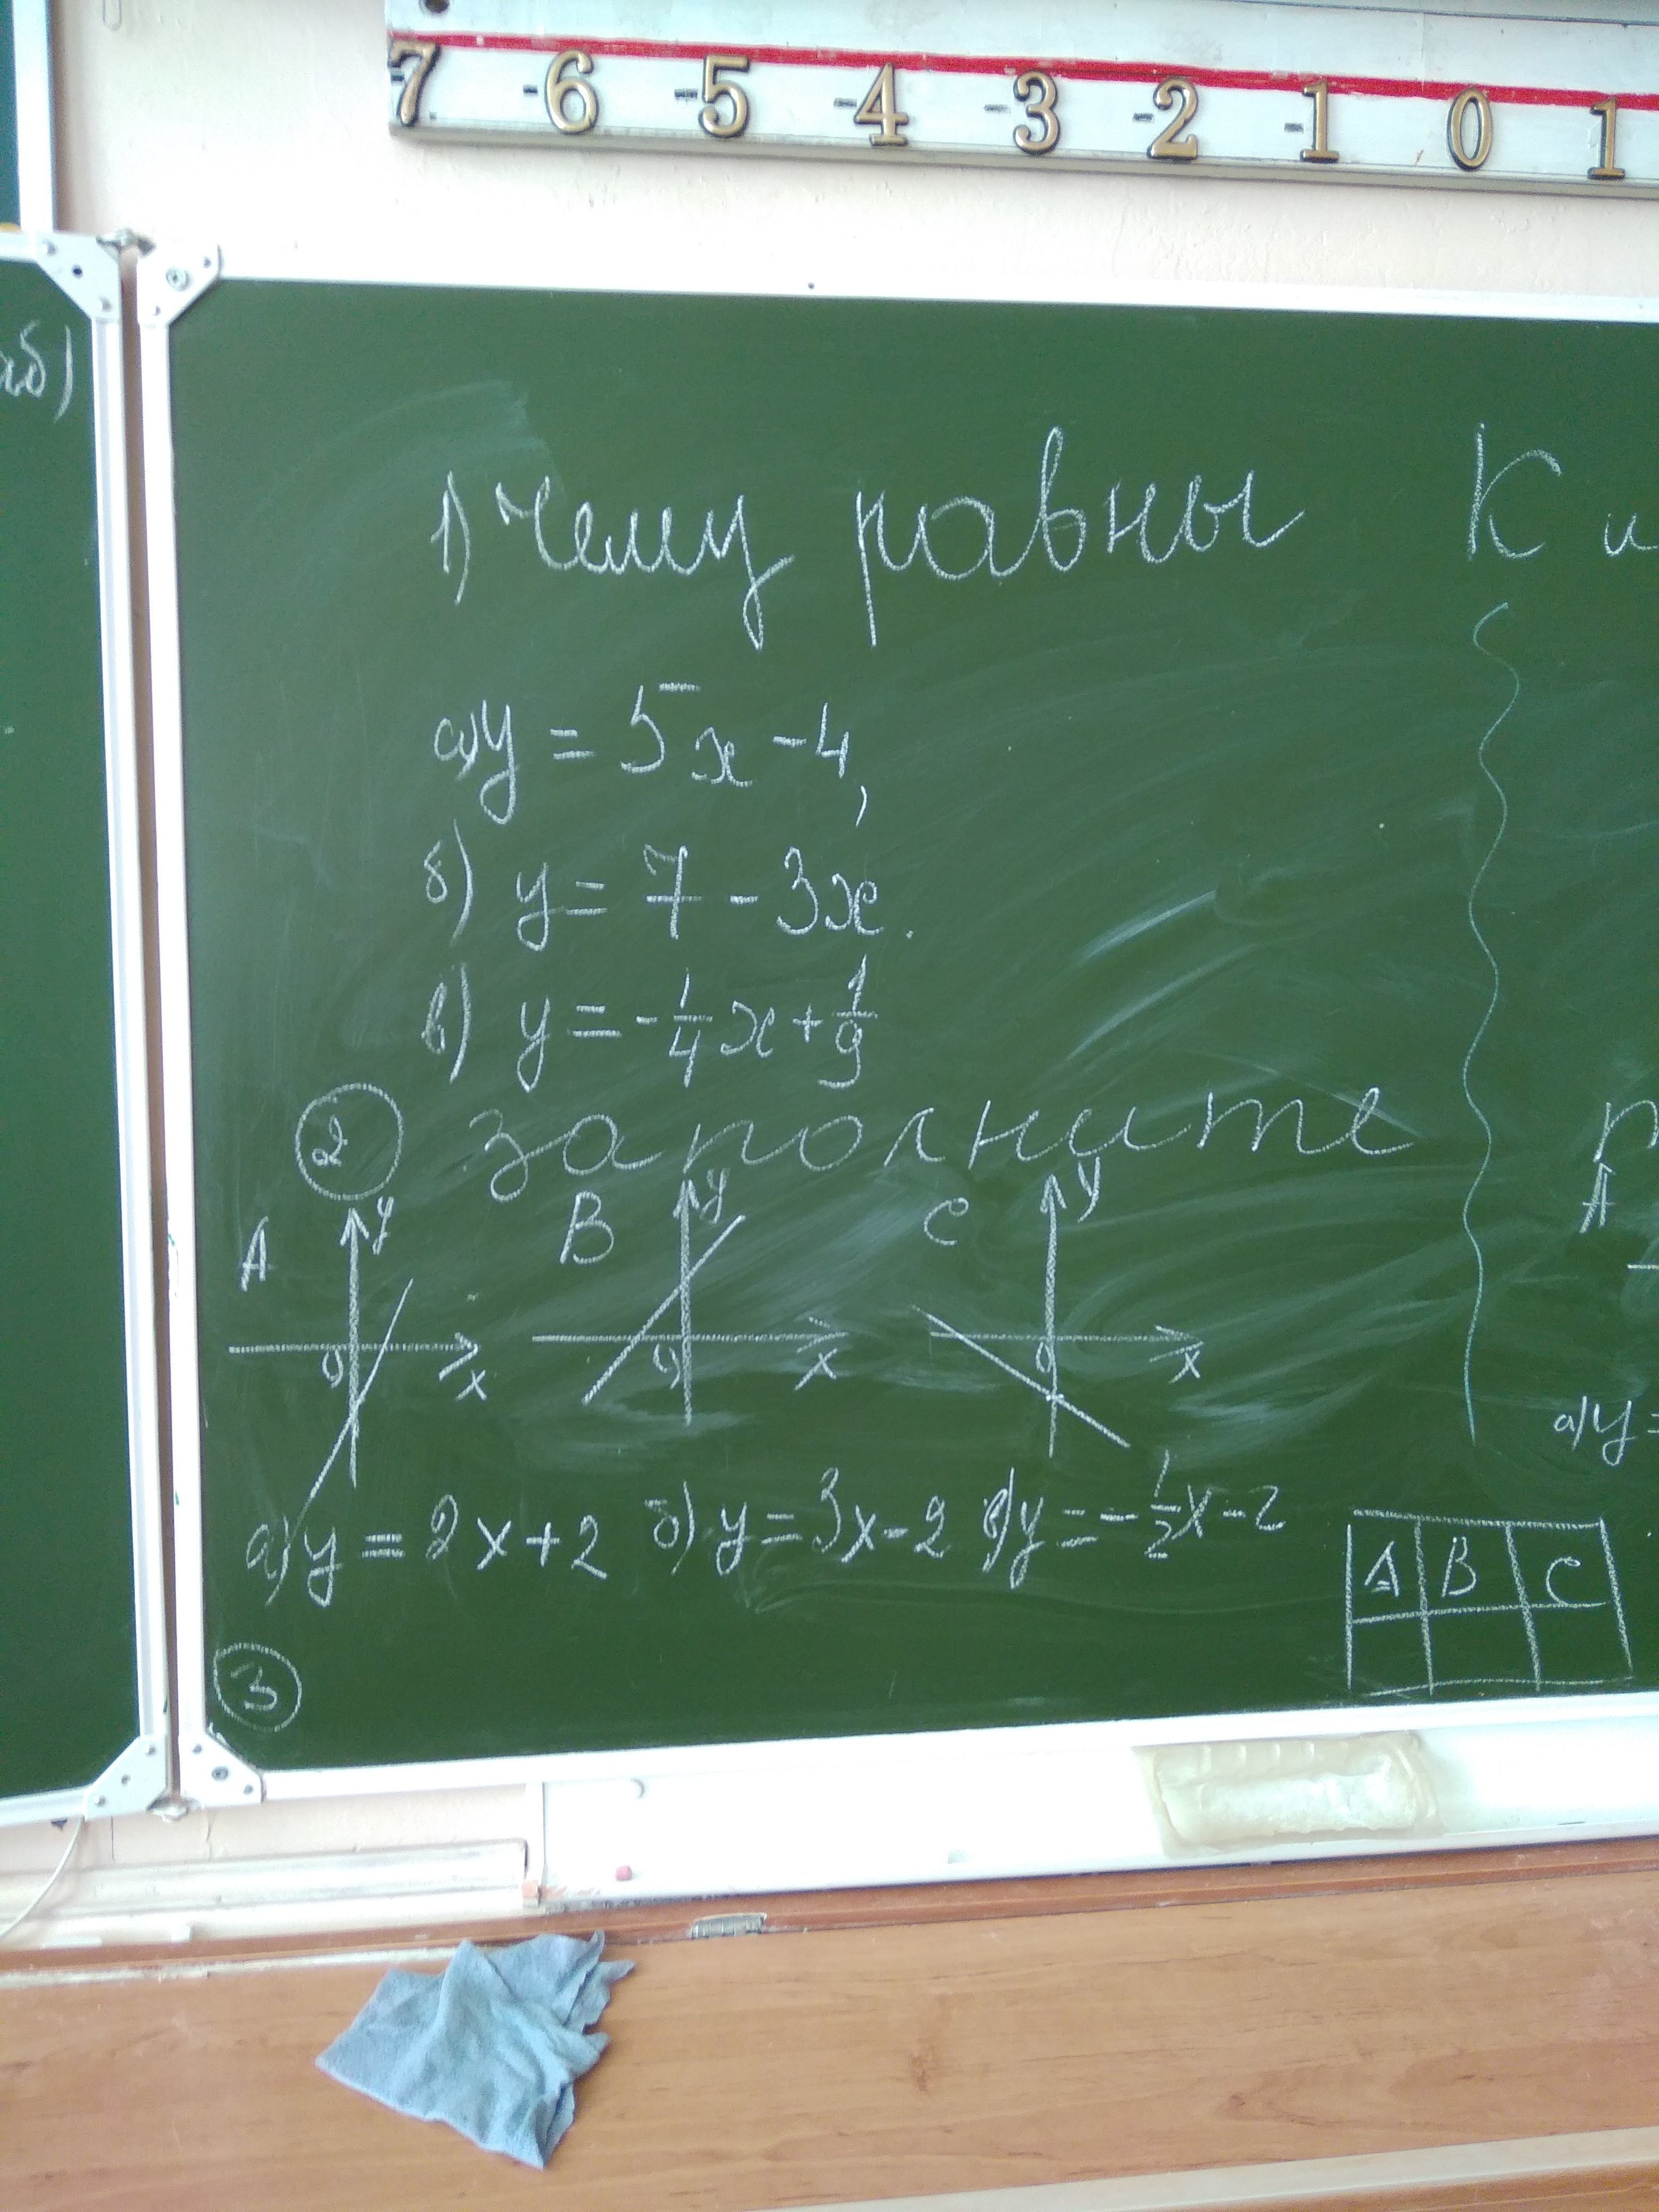 -7 -6 -5 -4 -3 -2 -1 0 1
1) чему равны К и
а) y = 5x - 4,
б) y = 7 - 3x.
в) y = -1/4 x + 1/9
2 заполните
A y 0 x B y 0 x C y 0 x
A
а) y = 2x + 2 б) y = 3x - 2 в) y = -1/2 x - 2
а) y =
A B C
3